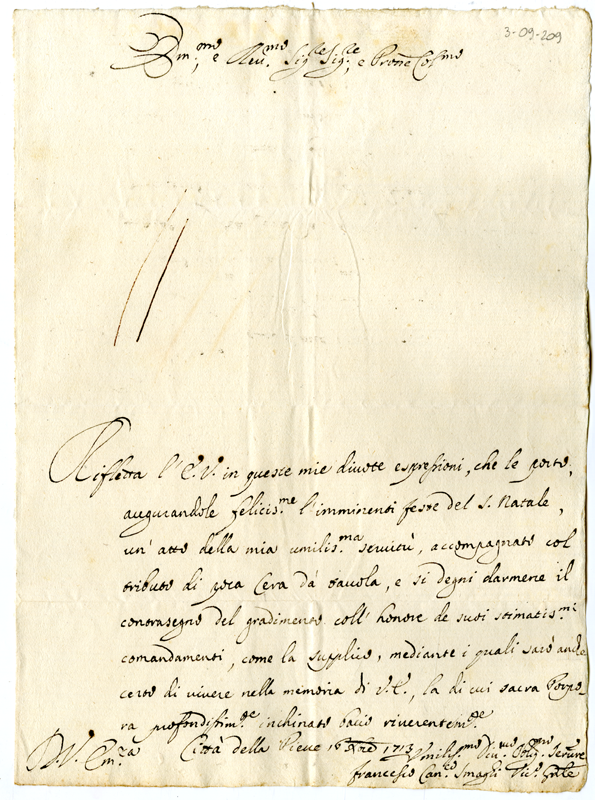 3-09-209
Em.mo e Reu.mo Sig.re Sig.re, e Prone Col.mo
Rifletta l'E.V. in queste mie diuote espressioni, che le porto,
augurandole felicis.me l'imminenti feste del S. Natale,
un' atto della mia umilis.ma seruitù, accompagnato col
tributo di poca Cera dà tauola, e si degni darmene il
contrasegno del gradimento coll' honore de suoi stimatis.mi
comandamenti, come la supplico, mediante i quali sarò anche
certo di viuere nella memoria di V.E., la di cui sacra Porpo_
ra profondissim.te inchinato bacio riuerentem.te
D.V. Em.za Città della Pieue 16 Xbre 1713
Vmilis.mo Diu.mo Oblig.mo Serure
Francesco Can.co Smagli Vic.o Gnle